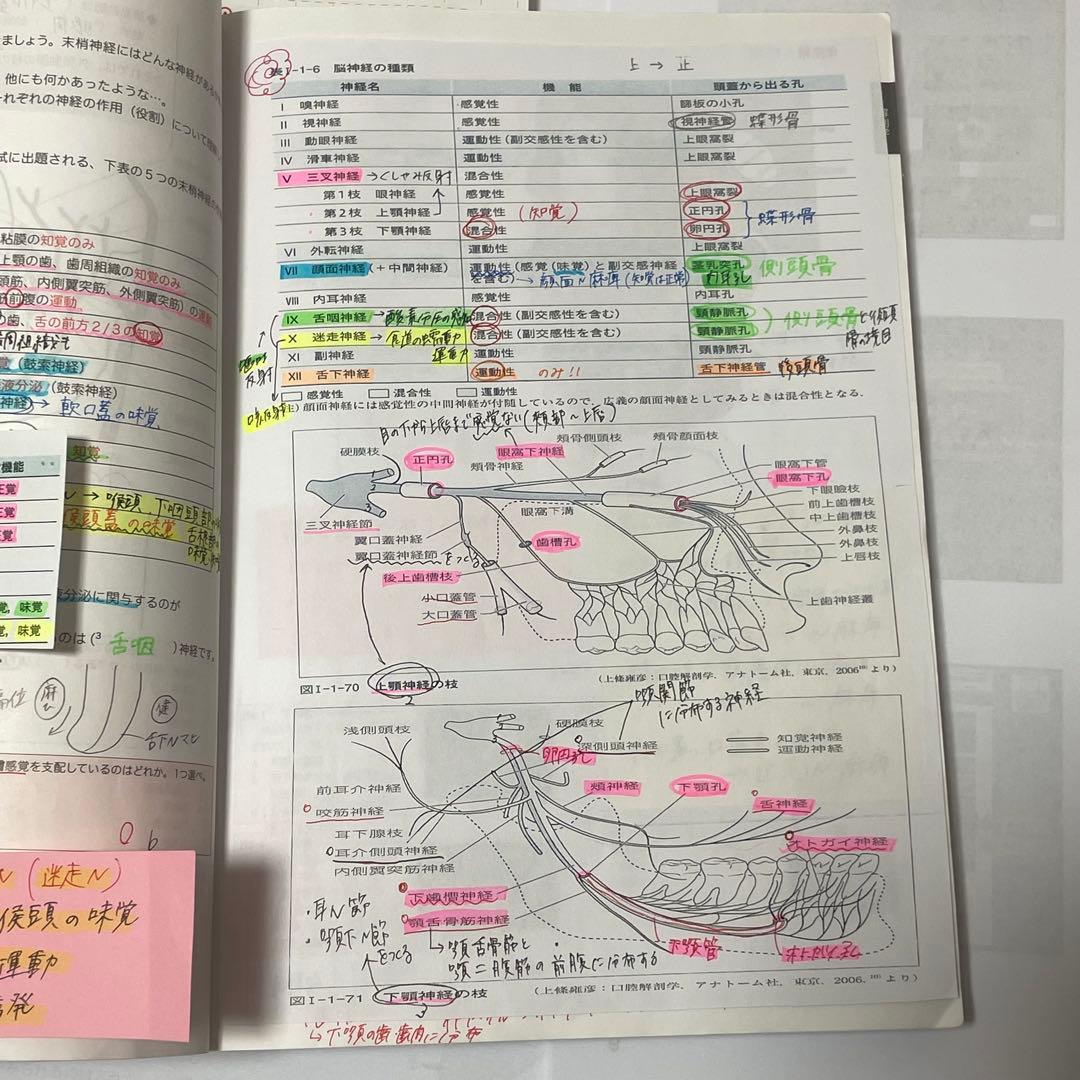 ましょう。末梢神経にはどんな神経がある
他にも何かあったような…。
れぞれの神経の作用（役割）について
試に出題される、下表の5つの末梢神経の
粘膜の知覚のみ
上顎の歯、歯周組織の知覚のみ
頭筋、内側翼突筋、外側翼突筋）の運動
前腹の運動
の歯、舌の前方2/3の知覚
覚（鼓索神経）
液分泌（鼓索神経）
神経）→ 軟口蓋の味覚
知覚
機能
喉頭蓋の味覚
覚，味覚
覚，味覚
液分泌に関与するのが
のは（³ 舌咽 ）神経です。
麻ひ
健
舌下Nマヒ
感覚を支配しているのはどれか。1つ選べ。
（迷走N）
喉頭の味覚
運動
表Ⅰ-1-6 脳神経の種類
上→正
神経名 機能 頭蓋から出る孔
Ⅰ 嗅神経 感覚性 篩板の小孔
Ⅱ 視神経 感覚性 視神経管 蝶形骨
Ⅲ 動眼神経 運動性（副交感性を含む） 上眼窩裂
Ⅳ 滑車神経 運動性 上眼窩裂
Ⅴ 三叉神経 →くしゃみ反射 混合性
第1枝 眼神経 感覚性 上眼窩裂
第2枝 上顎神経 感覚性 （知覚） 正円孔 蝶形骨
第3枝 下顎神経 混合性 卵円孔
Ⅵ 外転神経 運動性 上眼窩裂
Ⅶ 顔面神経（＋中間神経） 運動性（感覚（味覚）と副交感神経 茎乳突孔 側頭骨
を含む）→ 顔面N麻痺（知覚は正常） 内耳孔
Ⅷ 内耳神経 感覚性 内耳孔
Ⅸ 舌咽神経 混合性（副交感性を含む） 頸静脈孔 側頭骨と後頭
Ⅹ 迷走神経 → 食道の蠕動 混合性（副交感性を含む） 頸静脈孔 骨の境目
運動
Ⅺ 副神経 運動性 頸静脈孔
Ⅻ 舌下神経 運動性 のみ!! 舌下神経管 後頭骨
反射
感覚性 混合性 運動性
注）顔面神経には感覚性の中間神経が付随しているので，広義の顔面神経としてみるときは混合性となる．
目の下から上唇まで感覚ない（頬部～上唇）
硬膜枝
正円孔
眼窩下神経
頬骨側頭枝
頬骨顔面枝
頬骨神経
眼窩下管
眼窩下孔
下眼瞼枝
前上歯槽枝
中上歯槽枝
外鼻枝
外鼻枝
上唇枝
上歯神経叢
三叉神経節
眼窩下溝
翼口蓋神経
翼口蓋神経節をつくる
歯槽孔
後上歯槽枝
小口蓋管
大口蓋管
（上條雍彦：口腔解剖学．アナトーム社，東京，2006¹⁰⁾より）
図Ⅰ-1-70 上顎神経の枝
2
顎関節
に分布する神経
浅側頭枝
硬膜枝
深側頭神経
知覚神経
運動神経
卵円孔
前耳介神経
頬神経
下顎孔
舌神経
咬筋神経
耳下腺枝
オトガイ神経
耳介側頭神経
内側翼突筋神経
下歯槽神経
顎舌骨筋神経
・耳N節
・顎下N節
をつくる
顎舌骨筋と
顎二腹筋の前腹に分布する
下顎管
オトガイ孔
図Ⅰ-1-71 下顎神経の枝
3
（上條雍彦：口腔解剖学．アナトーム社，東京，2006.¹⁰⁾より）
↳下顎の歯・歯肉に分布